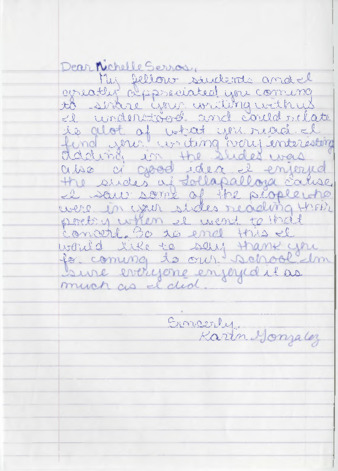 Dear Michelle Serros,
My fellow students and I
greatly appreciated you coming
to share your writing with us
I understood and could relate
to alot of what you read. I
find your writing very interesting
adding in the slides was
also a good idea. I enjoyed
the slides of Lollapallooza cause,
I saw some of the people who
were in your slides reading their
poetry when I went to that
concert. So to end this I
would like to say thank you
for coming to our school. Im
sure everyone enjoyed it as
much as I did.
Sincerly,
Karin Gonzalez